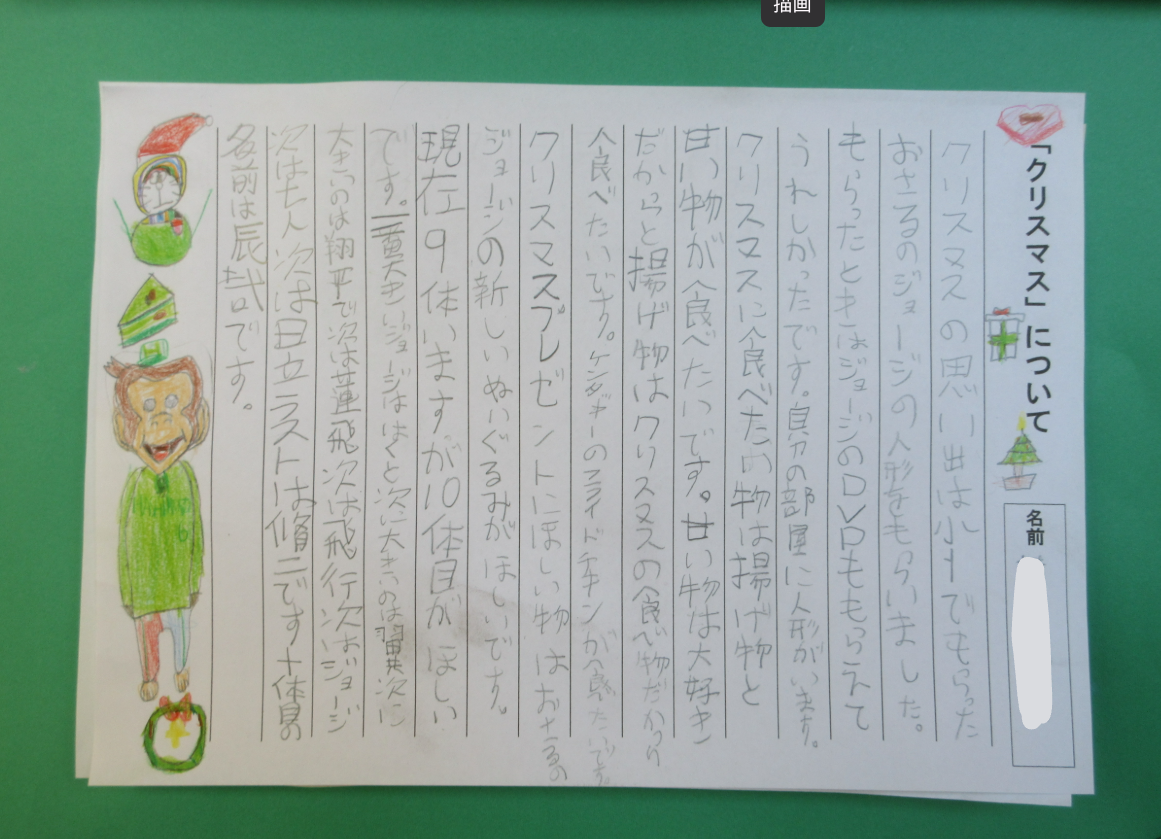 描画
「クリスマス」について
名前
クリスマスの思い出は小一でもらった
おさるのジョージの人形をもらいました。
もらったときはジョージのDVDももらえて
うれしかったです。自分の部屋に人形がいます。
クリスマスに食べたい物は揚げ物と
甘い物が食べたいです。甘い物は大好き
だからと揚げ物はクリスマスの食べ物だから
食べたいです。ケンタッキーのフライドチキンが食べたいです。
クリスマスプレゼントにほしい物はおさるの
ジョージの新しいぬいぐるみがほしいです。
現在9体いますが10体目がほしい
です。一番大きいジョージははくと次に大きいのは翼次に
大きいのは翔平で次は蓮飛次は飛行次はジョージ
次は七人次は日立ラストは脩二です十体目の
名前は辰哉です。